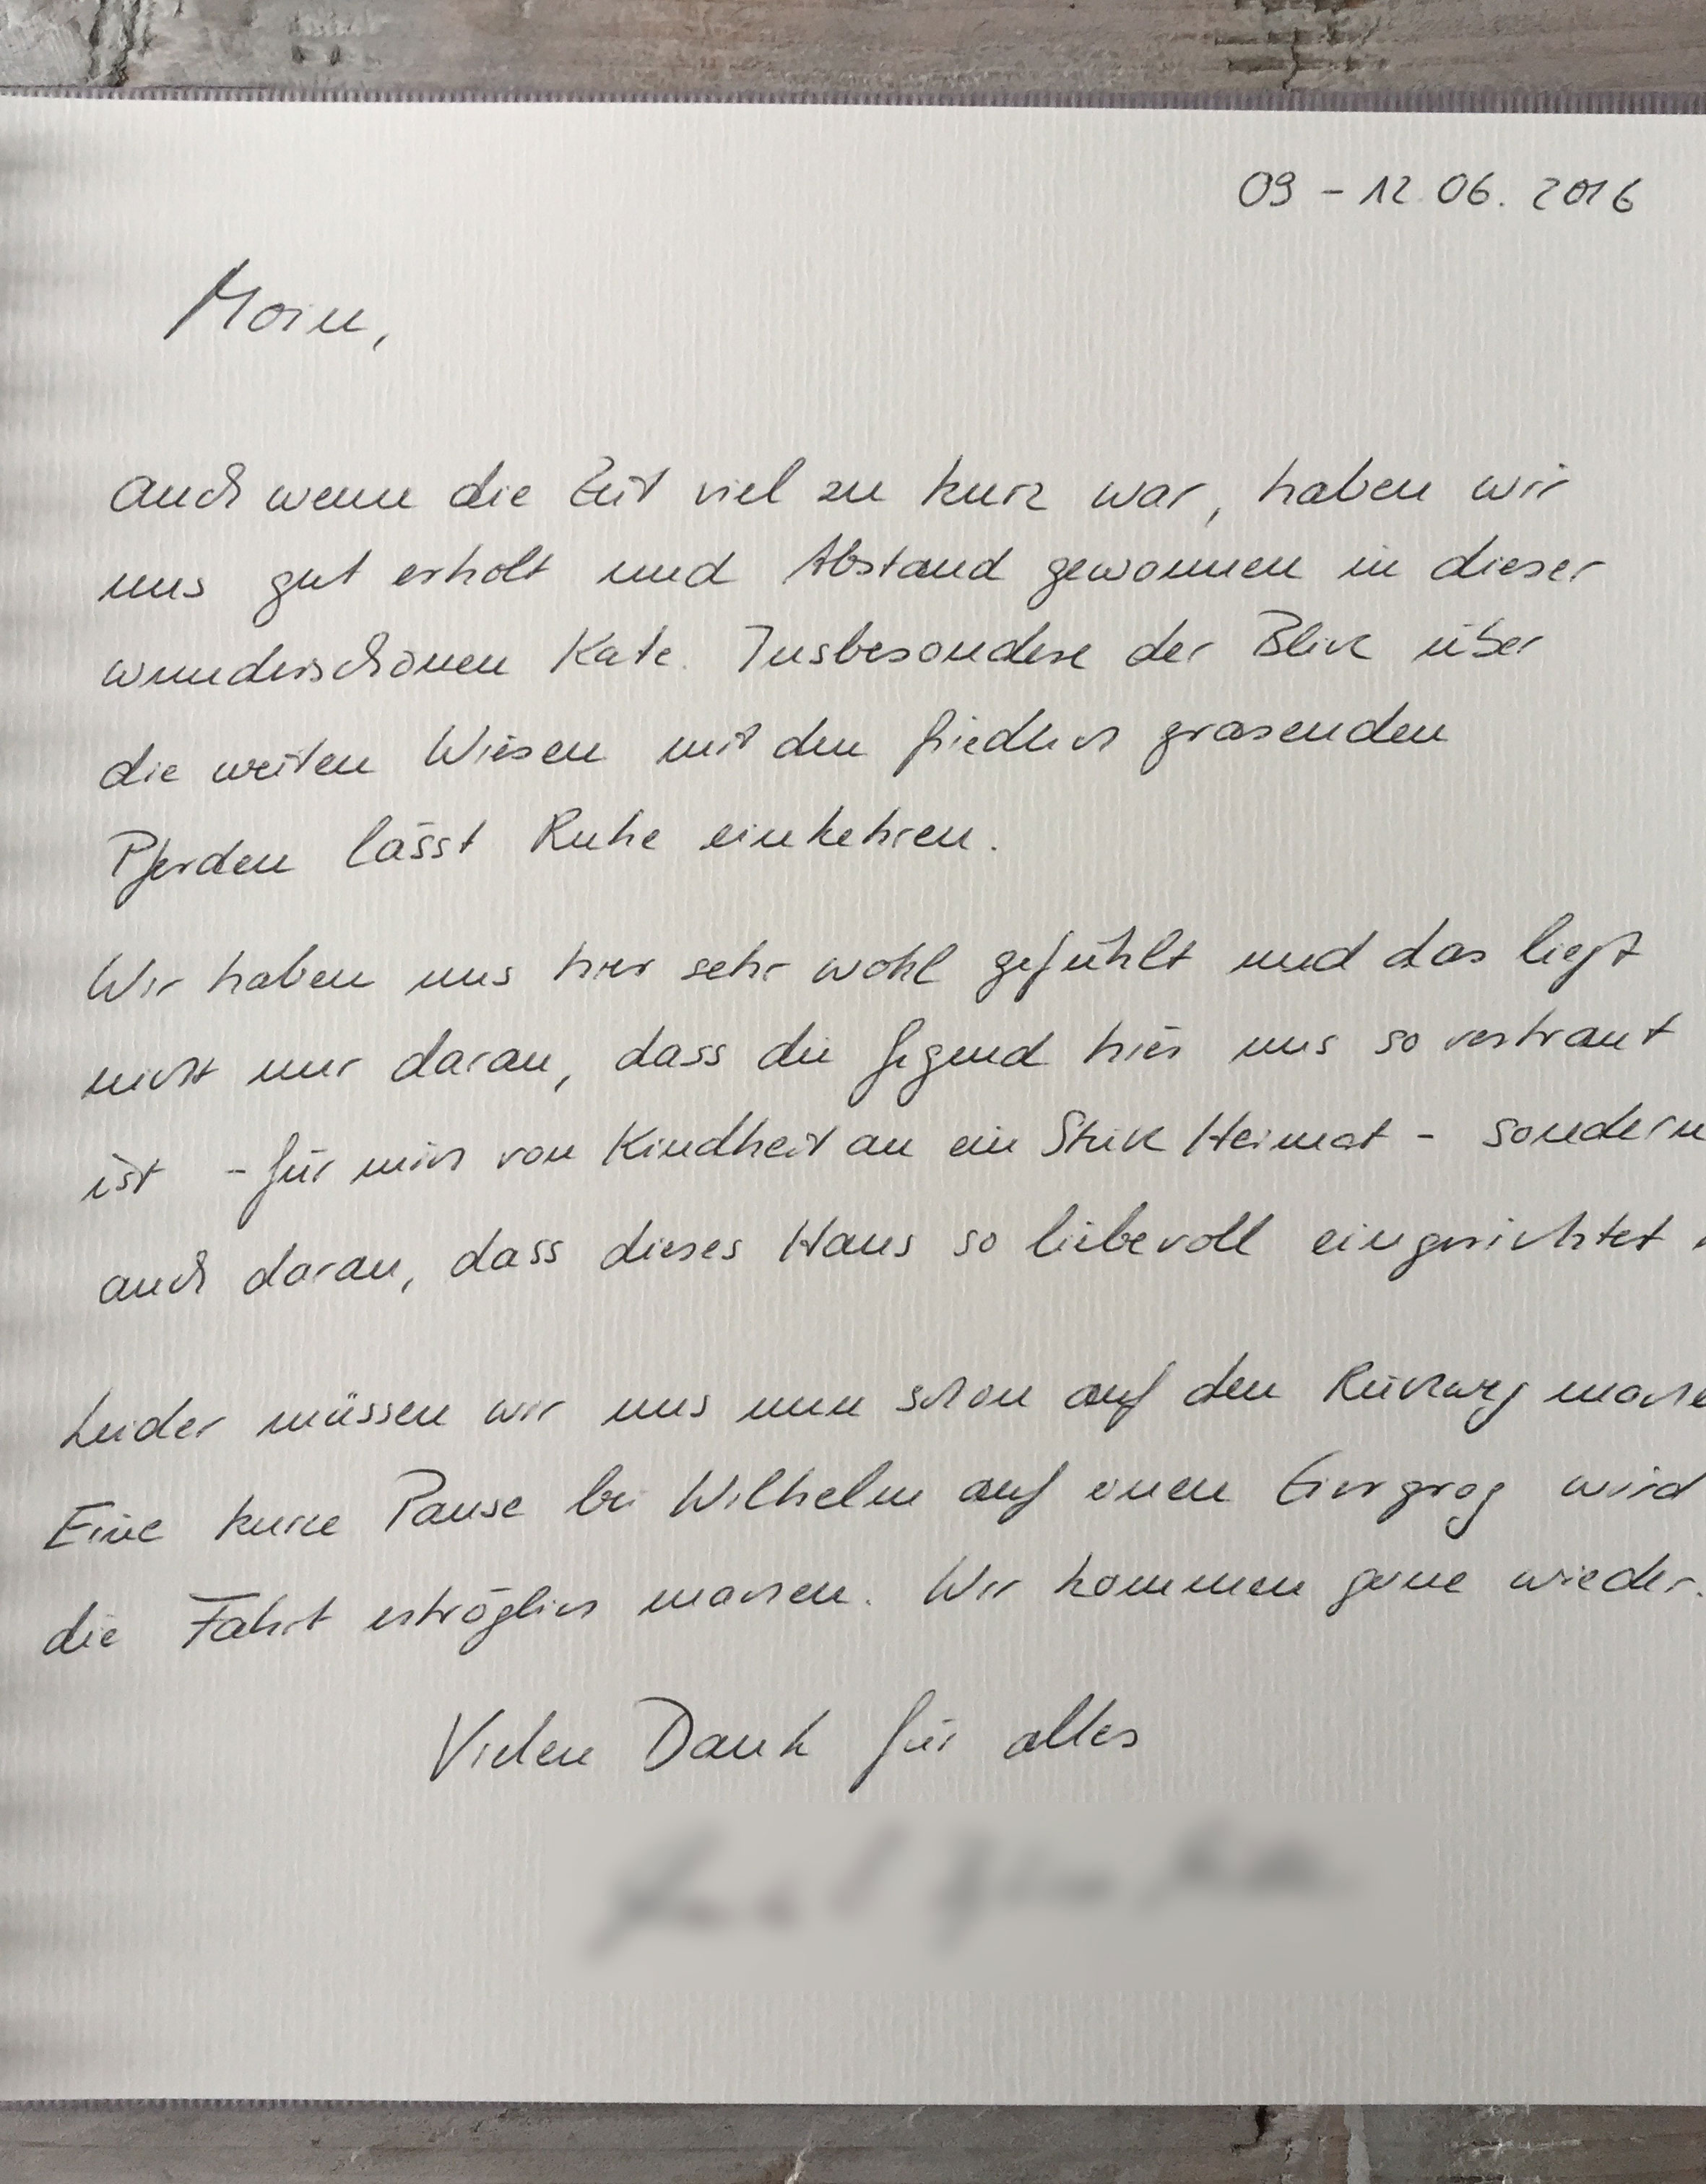 09 - 12.06.2016
Moin,
auch wenn die Zeit viel zu kurz war, haben wir
uns gut erholt und Abstand gewonnen in dieser
wunderschönen Kate. Insbesondere der Blick über
die weiten Wiesen mit den friedlich grasenden
Pferden lässt Ruhe einkehren.
Wir haben uns hier sehr wohl gefühlt und das liegt
nicht nur daran, dass die Gegend hier uns so vertraut
ist - für mich von Kindheit an ein Stück Heimat - sondern
auch daran, dass dieses Haus so liebevoll eingerichtet
Leider müssen wir uns nun schon auf den Rückweg mache
Eine kurze Pause bei Wilhelm auf einen Eiergrog wird
die Fahrt erträglich machen. Wir kommen gerne wieder.
Vielen Dank für alles